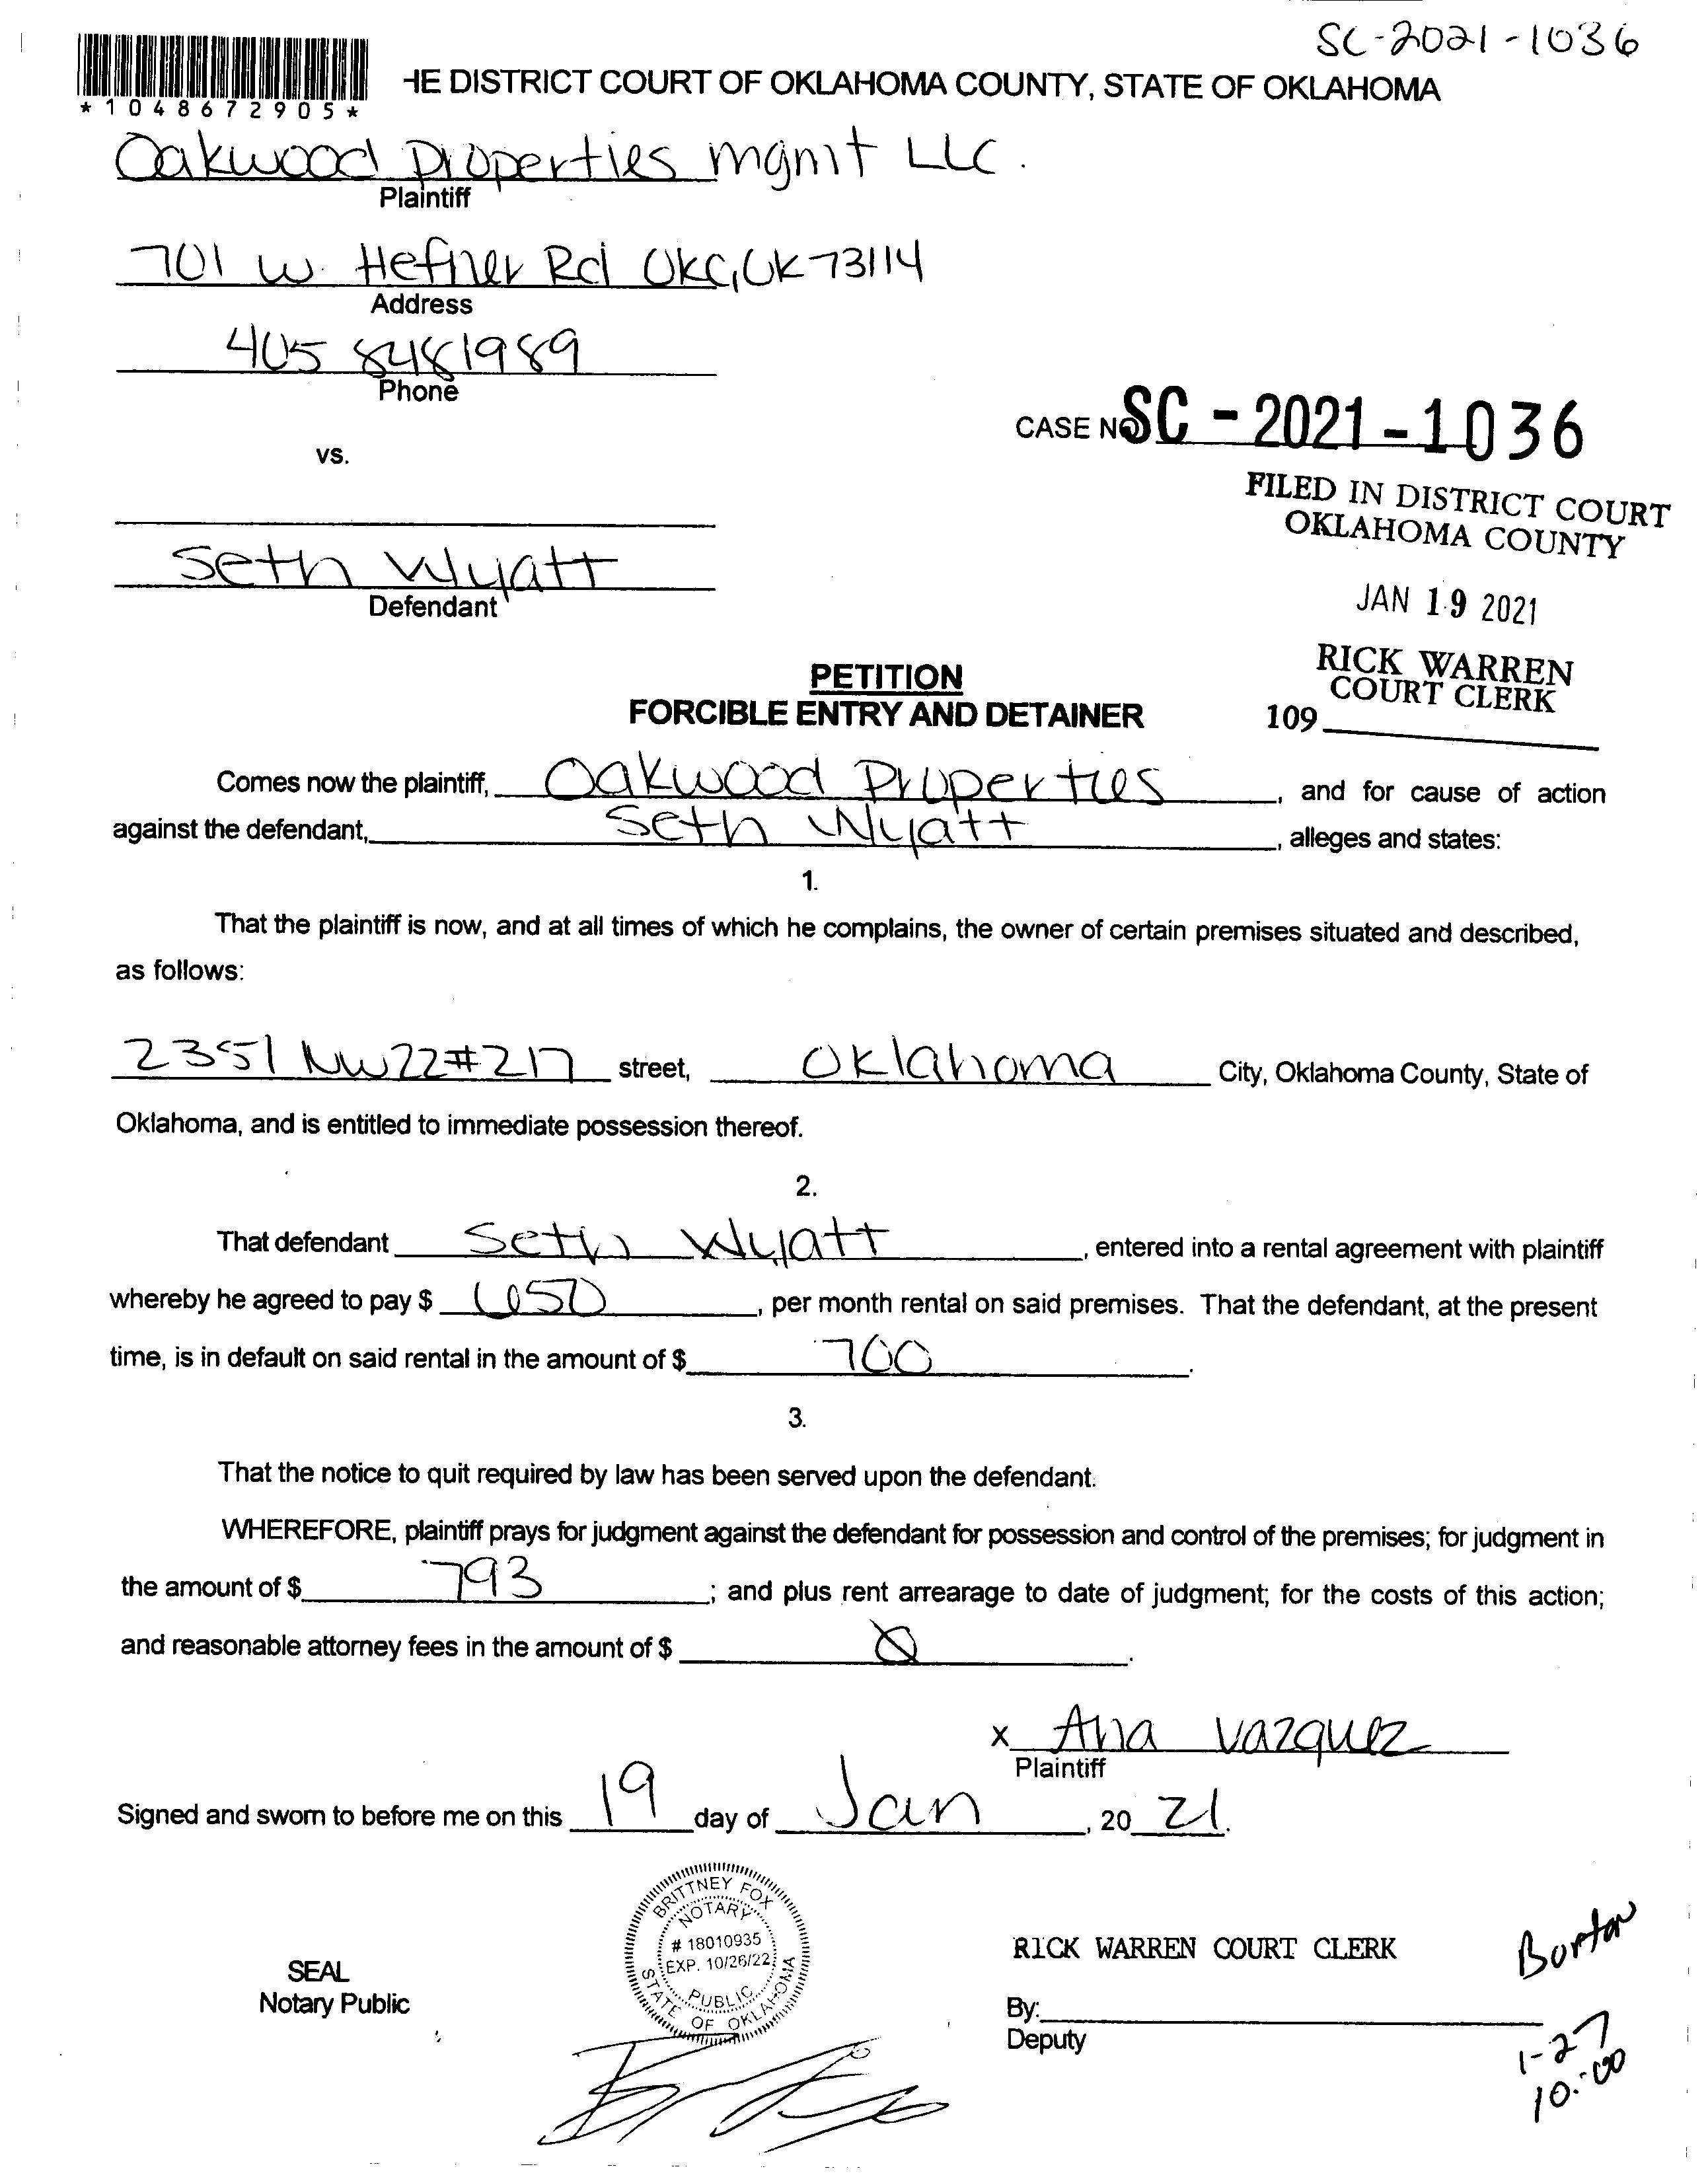 SC-2021-1036
*1048672905*
HE DISTRICT COURT OF OKLAHOMA COUNTY, STATE OF OKLAHOMA
Oakwood Properties mgmt LLC.
Plaintiff
701 W. Hefner Rd OKC, OK 73114
Address
405 8481989
Phone
CASE NO SC-2021-1036
vs.
FILED IN DISTRICT COURT
OKLAHOMA COUNTY
Seth Wyatt
Defendant
JAN 19 2021
RICK WARREN
COURT CLERK
109
PETITION
FORCIBLE ENTRY AND DETAINER
Comes now the plaintiff, Oakwood Properties, and for cause of action
against the defendant, Seth Wyatt, alleges and states:
1.
That the plaintiff is now, and at all times of which he complains, the owner of certain premises situated and described,
as follows:
2351 NW 22 #217 street, Oklahoma City, Oklahoma County, State of
Oklahoma, and is entitled to immediate possession thereof.
2.
That defendant Seth Wyatt, entered into a rental agreement with plaintiff
whereby he agreed to pay $ 650, per month rental on said premises. That the defendant, at the present
time, is in default on said rental in the amount of $ 700.
3.
That the notice to quit required by law has been served upon the defendant.
WHEREFORE, plaintiff prays for judgment against the defendant for possession and control of the premises; for judgment in
the amount of $ 793; and plus rent arrearage to date of judgment; for the costs of this action;
and reasonable attorney fees in the amount of $ Ø.
x Ana Vazquez
Plaintiff
Signed and sworn to before me on this 19 day of Jan, 20 21.
BRITTNEY FOX
NOTARY
# 18010935
EXP. 10/26/22
PUBLIC
STATE OF OKLAHOMA
SEAL
Notary Public
RICK WARREN COURT CLERK
By:
Deputy
Burton
1-27
10:00